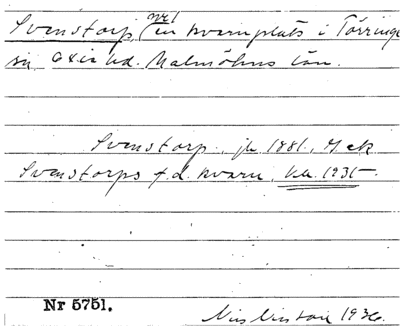 Svenstorp, nr 1 (en kvarnplats i Törringe
sn, Oxie hd. Malmöhus län.
Svenstorp, jb 1881, M ek
Svenstorps f.d. kvarn, 1931
Nr 5751.
Nils 1936.